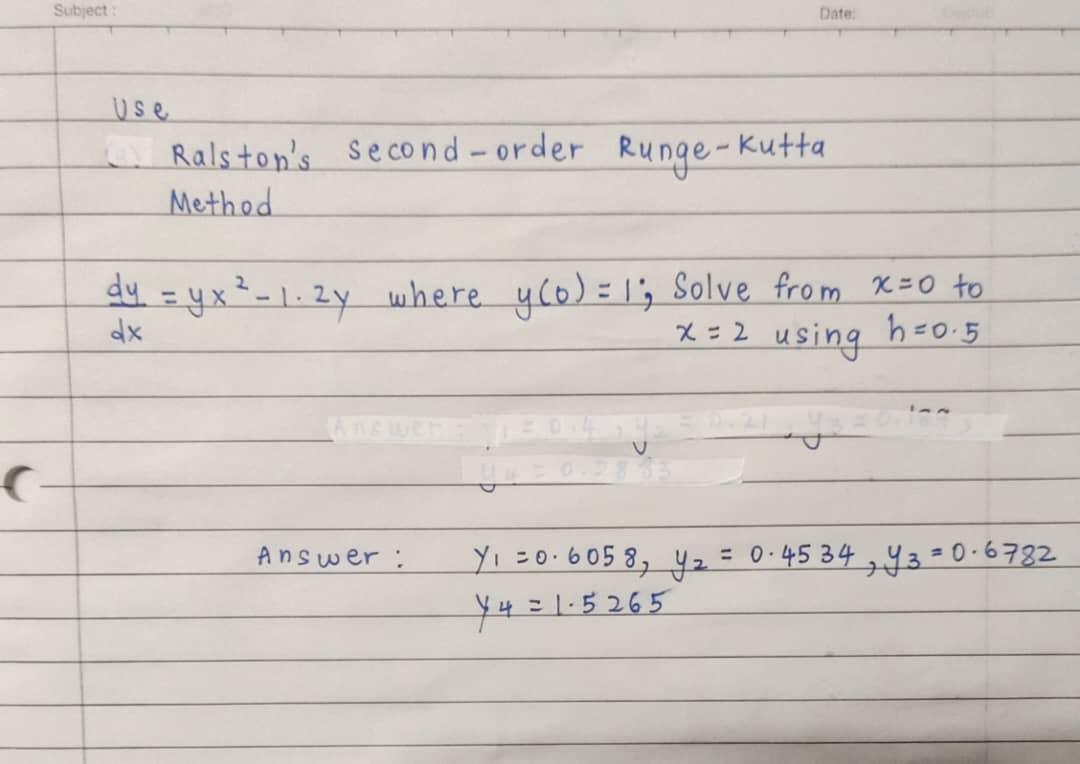 Subject :
Date:
Use
Ralston's second-order Runge-Kutta
Method
dy/dx = yx² - 1.2y where y(0) = 1; Solve from x=0 to
x = 2 using h=0.5
Answer : y1 = 0.4, y2 = 0.21, y3 =
y4 = 0.2883
Answer : y1 = 0.6058, y2 = 0.4534, y3 = 0.6782
y4 = 1.5265